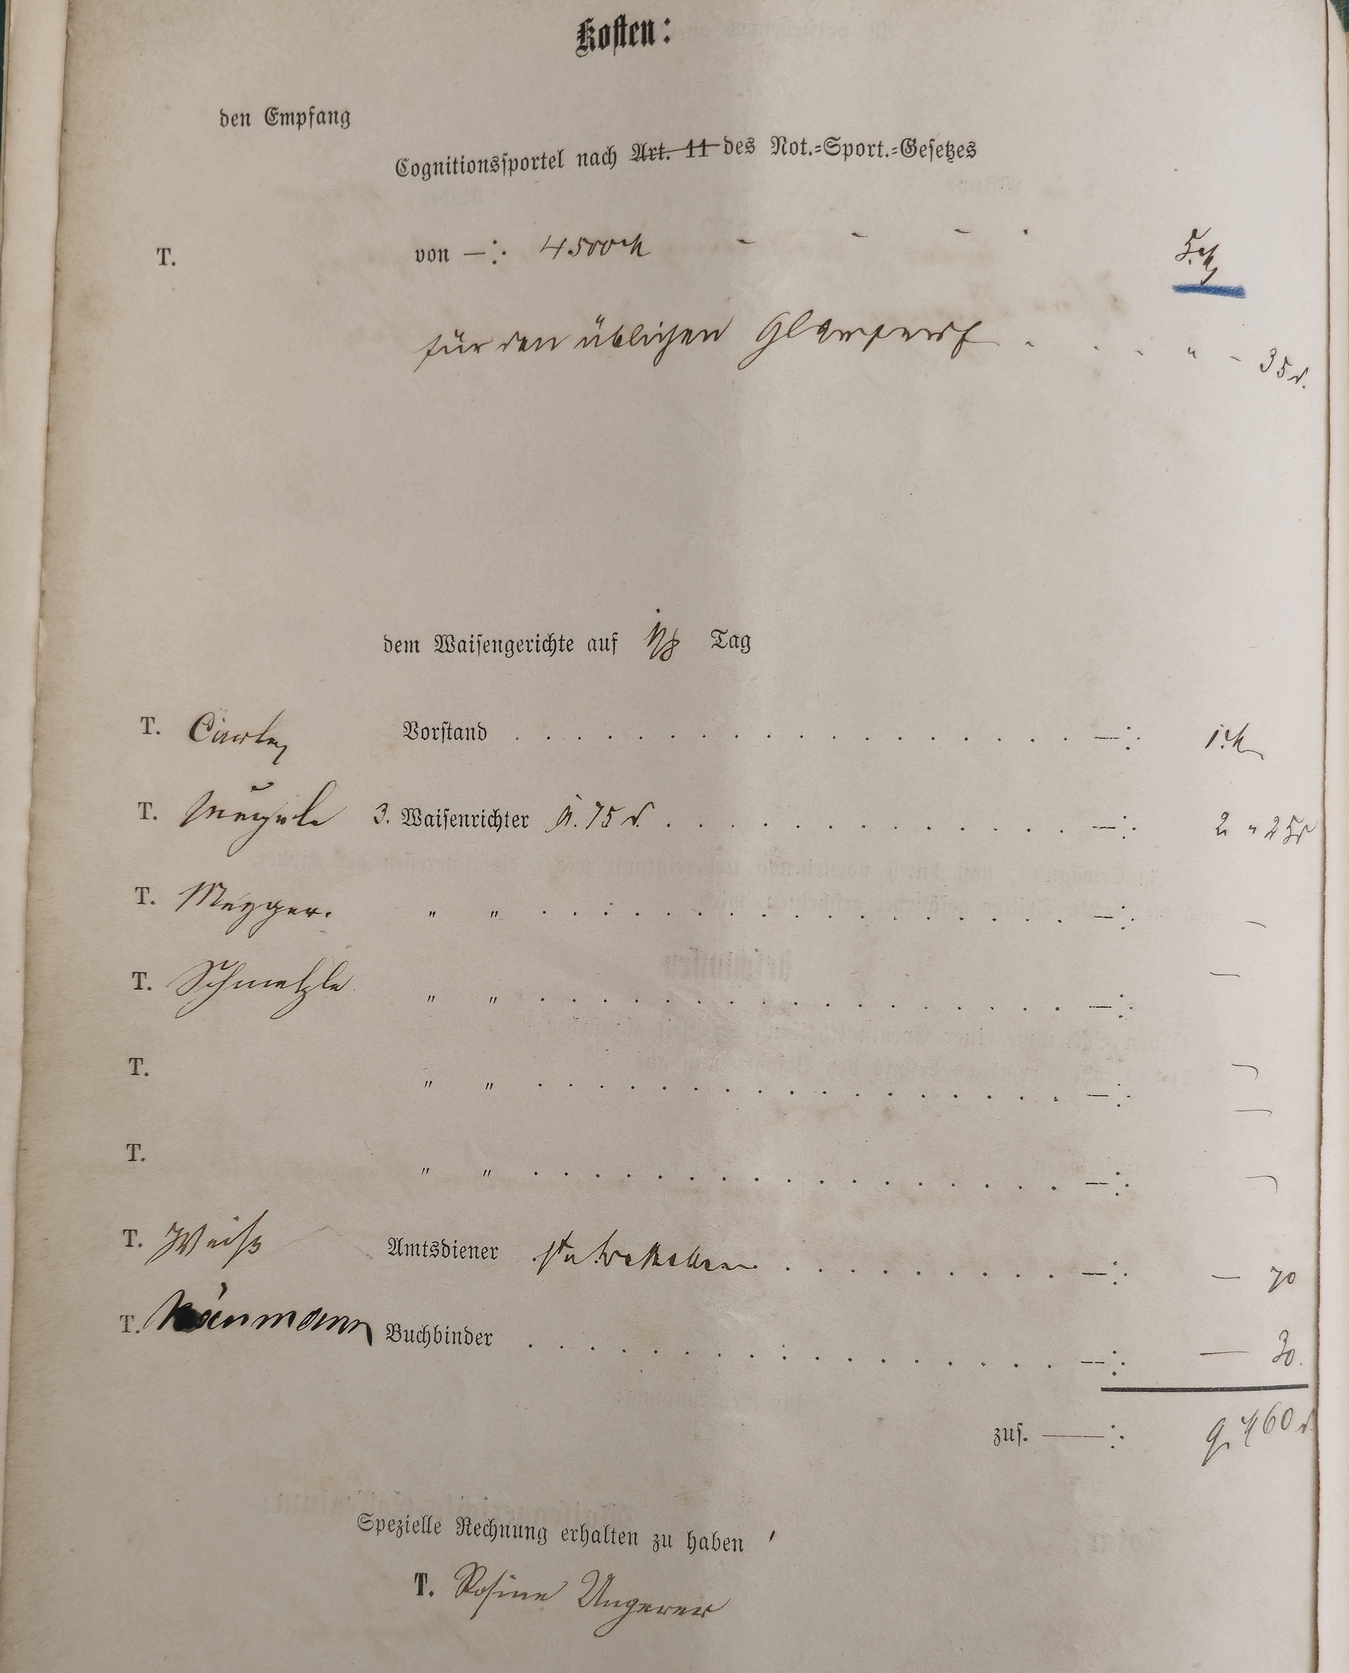 Kosten:
den Empfang
Cognitionssportel nach Art. 11 des Not.-Sport.-Gesetzes
T. von —: 4500 M 5 M
für den üblichen - 35 d.
dem Waisengerichte auf 1/8 Tag
T. Vorstand . . . . . . . . . . . . . . . . . . —: 1 M
T. 3. Waisenrichter à 75 d. . . . . . . . . . . . . . . —: 2 " 25 d
T. Metzger. " " . . . . . . . . . . . . . . . . . . —: —
T. Schmelzle " " . . . . . . . . . . . . . . . . . . —: —
T. " " . . . . . . . . . . . . . . . . . . —:
T. " " . . . . . . . . . . . . . . . . . . —:
T. Weiß Amtsdiener . . . . . . . . . . —: — 70
T. Buchbinder . . . . . . . . . . . . . . . . . . —: — 30.
zus. ——: 9 M 60 d.
Spezielle Rechnung erhalten zu haben
T. Rosine Ungerer